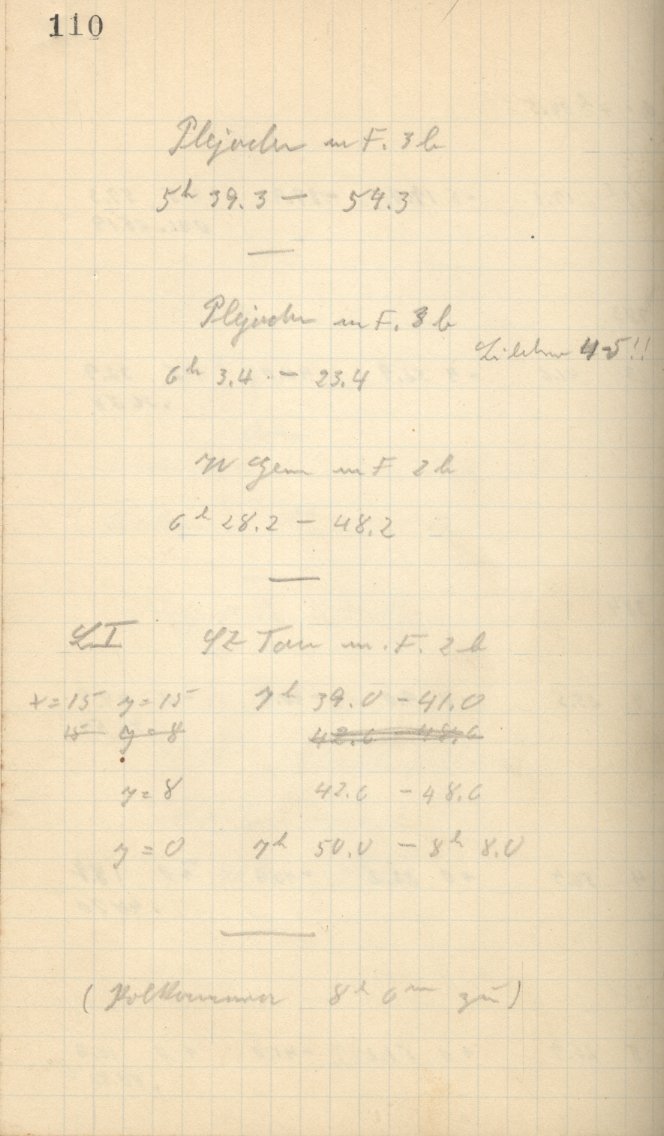 110
Plejaden m F. 3 b
5h 39.3 — 54.3
Plejaden m F. 3 b
4-5!!
6h 3.4 — 23.4
W Gem m F 2 b
6h 28.2 — 48.2
SZ Tau m. F. 2 b
x=15 y=15 7h 39.0 - 41.0
15 y=8 42.0 - 48.0
y=8 42.0 - 48.0
y=0 7h 50.0 - 8h 8.0
(Polkammer 8h 6m zu)